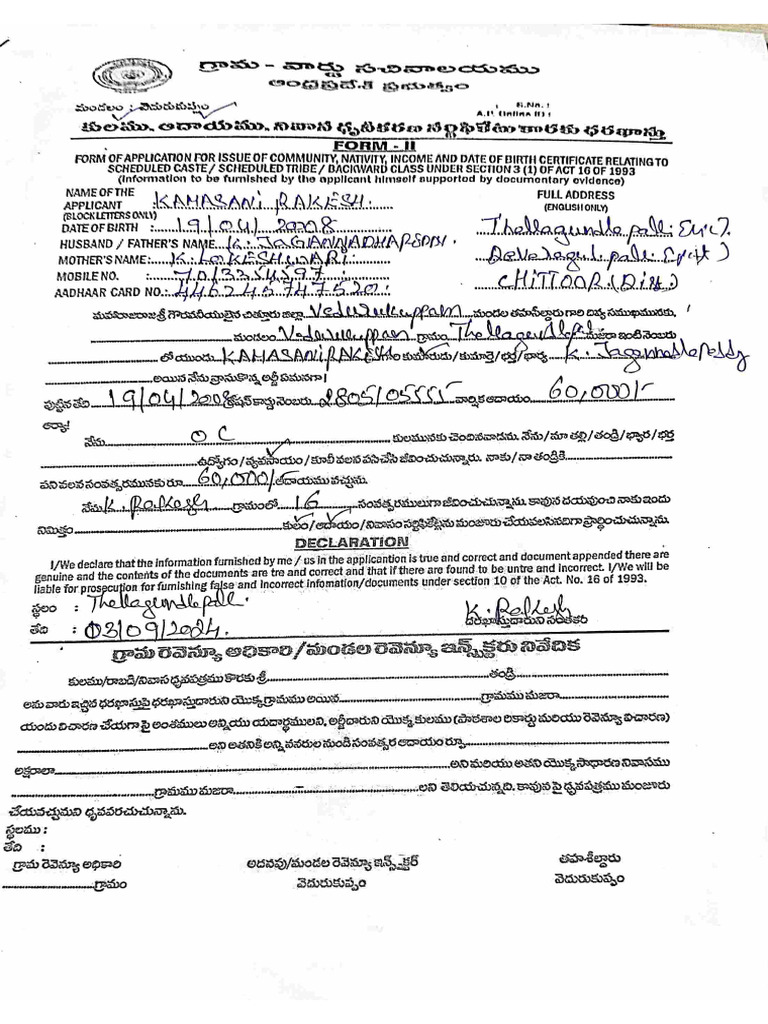 గ్రామ - వార్డు సచివాలయము
ఆంధ్రప్రదేశ్ ప్రభుత్వం
మండలం : వెదురుకుప్పం
S.No. :
కులము, ఆదాయము, నివాస ధృవీకరణ సర్టిఫికేటు కొరకు ధరఖాస్తు
FORM - II
FORM OF APPLICATION FOR ISSUE OF COMMUNITY, NATIVITY, INCOME AND DATE OF BIRTH CERTIFICATE RELATING TO
SCHEDULED CASTE / SCHEDULED TRIBE / BACKWARD CLASS UNDER SECTION 3 (1) OF ACT 16 OF 1993
(Information to be furnished by the applicant himself supported by documentary evidence)
NAME OF THE APPLICANT KAMASANI RAKESH FULL ADDRESS
(BLOCK LETTERS ONLY) (ENGLISH ONLY)
DATE OF BIRTH : 19/04/2008 Thellagundla palli
HUSBAND / FATHER'S NAME K. JAGANNADHA REDDY
MOTHER'S NAME: K. LOKESHWARI
MOBILE NO. : CHITTOOR (Dist)
AADHAAR CARD NO.: 446245747520
మహారాజరాజశ్రీ గౌరవనీయులైన చిత్తూరు జిల్లా Vedurukuppam మండల తహసీల్దారు గారి దివ్య సముఖమునకు,
మండలం Vedurukuppam గ్రామం మజరా ఇంటి నెంబరు
లో యుండు KAMASANI RAKESH కుమారుడు/కుమార్తె/భర్త/భార్య K. Jagannadha reddy
అయిన నేను వ్రాసుకొన్న అర్జీ ఏమనగా।
పుట్టిన తేది 19/04/2008 రేషన్ కార్డు నెంబరు వార్షిక ఆదాయం 60,000/-
అర్యా!
నేను OC కులమునకు చెందినవాడను. నేను/మా తల్లి/తండ్రి/భార్య/భర్త
ఉద్యోగం/వ్యవసాయం/కూలీ వలన పనిచేసి జీవించుచున్నారు. నాకు/నా తండ్రికి
పని వలన సంవత్సరమునకు రూ 60,000/- ఆదాయము వచ్చును.
నేను K. Rakesh గ్రామంలో 16 సంవత్సరములుగా జీవించుచున్నాను. కావున దయవుంచి నాకు ఇందు
నిమిత్తం కులం/ఆదాయం/నివాస సర్టిఫికెట్లను మంజూరు చేయవలసినదిగా ప్రార్థించుచున్నాను.
DECLARATION
I/We declare that the information furnished by me / us in the applicantion is true and correct and document appended there are
genuine and the contents of the documents are tre and correct and that if there are found to be untre and incorrect. I/We will be
liable for prosecution for furnishing false and incorrect infomation/documents under section 10 of the Act. No. 16 of 1993.
స్థలం : Thellagundla palli K. Rakesh
తేది : 03/09/2024. దరఖాస్తుదారుని సంతకం
గ్రామ రెవెన్యూ అధికారి/మండల రెవెన్యూ ఇన్స్పెక్టరు నివేదిక
కులము/రాబడి/నివాస ధృవపత్రము కొరకు శ్రీ తండ్రి.
అను వారు ఇచ్చిన ధరఖాస్తుపై ధరఖాస్తుదారుని యొక్క గ్రామము అయిన గ్రామము మజరా
యందు విచారణ చేయగా పై అంశములు అన్నియు యదార్థములని, అర్జీదారుని యొక్క కులము (పాఠశాల రికార్డు మరియు రెవెన్యూ విచారణ)
అని అతనికి అన్ని వనరుల నుండి సంవత్సర ఆదాయం రూ.
అక్షరాలా అని మరియు అతని యొక్క సాధారణ నివాసము
గ్రామము మజరా లని తెలియచున్నది. కావున పై ధృవపత్రము మంజూరు
చేయవచ్చునని ధృవపరచుచున్నాను.
స్థలము :
తేది :
గ్రామ రెవెన్యూ అధికారి అదనపు/మండల రెవెన్యూ ఇన్స్పెక్టర్ తహశీల్దారు
గ్రామం వెదురుకుప్పం వెదురుకుప్పం